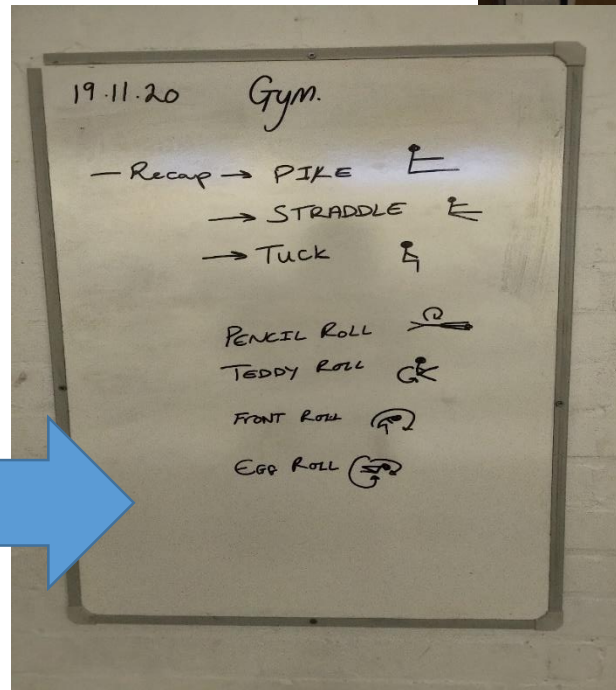 19.11.20 Gym.
— Recap → PIKE
→ STRADDLE
→ Tuck
PENCIL ROLL
TEDDY ROLL
FRONT ROLL
EGG ROLL